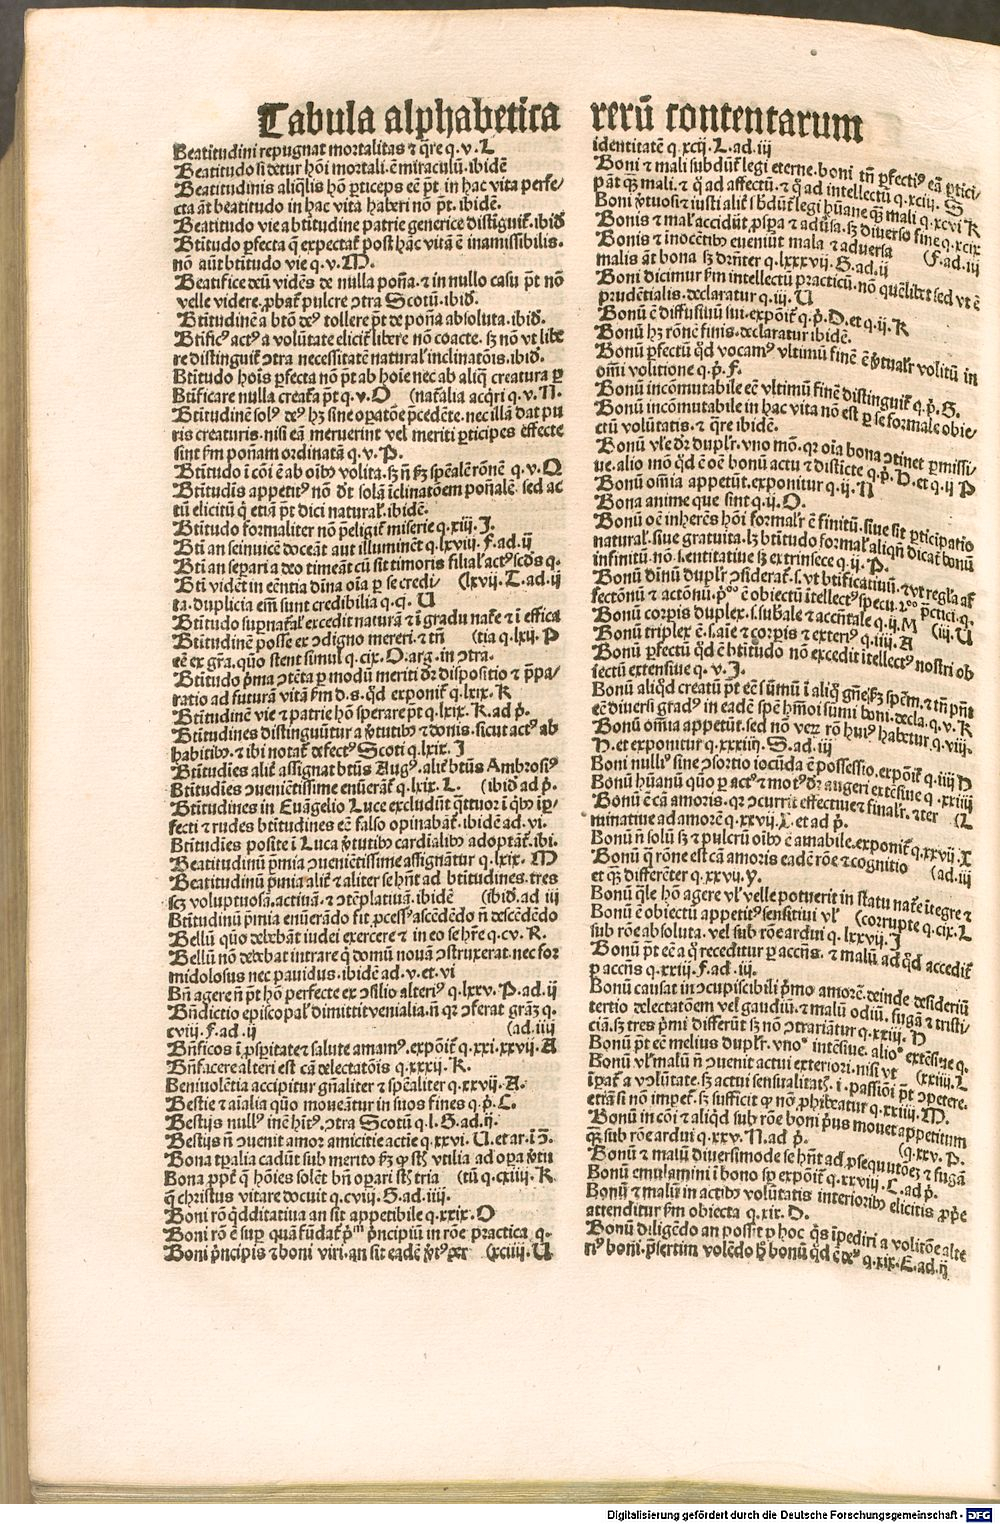 Tabula alphabetica rerū contentarum
Beatitudini repugnat mortalitas ⁊ q̄re q. v. L
Beatitudo si detur hōi mortali. ē miraculū. ibidē
Beatitudinis aliq̄lis hō ꝑticeps eē pt̄. in hac vita perfe/
cta āt beatitudo in hac vita haberi nō pt̄. ibidē.
Beatitudo vie a btitudine patrie generice distinguit᷑. ibid̄
Btitudo ꝑfecta q̄ expectat᷑ post hāc vitā ē inamissibilis.
nō aūt btitudo vie q. v. M.
Beatifice deū vidēs de nulla poña. ⁊ in nullo casu pt̄ nō
velle videre. ꝓbat᷑ pulcre ↄtra Scotū. ibid̄.
Btitudinē a btō deꝰ tollere pt̄ de poña absoluta. ibid̄.
Btificꝰ actꝰ a volūtate elicit᷑ libere nō coacte. sꝫ nō vt libe
re distinguit᷑ ↄtra necessitatē natural᷑ inclinatōis. ibid̄.
Btitudo hoīs ꝑfecta nō pt̄ ab hoīe nec ab aliq̄ creatura ꝑ
Btificare nulla creat᷑a pt̄ q. v. O (nat᷑alia acq̄ri q. v. N.
Btitudinē solꝰ deꝰ hꝫ sine oꝑatōe p̄cedēte. nec illā dat pu
ris creaturis. nisi eā meruerint vel meriti ꝑticipes effecte
sint ẜm poñam ordinatā q. v. P.
Btitudo ī cōi ē ab oībꝰ volita. sꝫ n̄ ẜꝫ sp̄ealē rōnē q. v. Q
Btitudīs appetitꝰ nō d̄t solā īclinatōem poñalē sed ac
tū elicitū q̄ etiā pt̄ dici natural᷑. ibidē.
Btitudo formaliter nō p̄eligit᷑ miserie q. xiij. J.
Bti an seinuicē doceāt aut illuminēt q. lxviij. F. ad. ij
Bti an separi a deo timeāt cū sit timoris filial᷑ actꝰ scd̄s q.
Bti vidēt in eēntia dīna oīa ꝑ se credi/ (lxvij. T. ad. ij
ta. duplicia em̄ sunt credibilia q. q. U
Btitudo suꝑnat᷑al᷑ excedit naturā ⁊ ī gradu nat᷑e ⁊ ī effica
Btitudinē posse ex ↄdigno mereri. ⁊ tn̄ (tia q. lxij. P
eē ex gr̄a. quō stent simul q. cix. O. arg. in ↄtra.
Btitudo p̄ma ↄtēta ꝑ modū meriti dꝛ dispositio ⁊ p̄pa/
ratio ad futurā vitā ẜm d. s. qd̄ exponit᷑ q. lxix. K
Btitudinē vie ⁊ patrie hō sperare pt̄ q. lxix. K. ad p̄.
Btitudines distinguūtur a v̄tutibꝰ ⁊ donis. sicut actꝰ ab
habitibꝰ. ⁊ ibi notat᷑ defectꝰ Scoti q. lxix. J
Btitudies alit᷑ assignat btūs Augꝰ. alit᷑ btūs Ambrosiꝰ
Btitudies ↄuenientissime enūerāt᷑ q. lxix. L. (ibid̄ ad p̄.
Btitudines in Euāgelio Luce excludūt q̄ttuor ī qbꝰ īꝑ/
fecti ⁊ rudes btitudines eē falso opinabāt᷑. ibidē ad. vi.
Btitudies posite ī Luca v̄tutibꝰ cardialibꝰ adoptāt᷑. ibi.
Beatitudinū p̄mia ↄuenientissime assignātur q. lxix. M
Beatitudinū p̄mia alit᷑ ⁊ aliter se hn̄t ad btitudines. tres
scꝫ voluptuosā. activā. ⁊ ↄtēplatiuā. ibidē (ibid̄. ad iij
Btitudinū p̄mia enūerādo fit ꝓcessꝰ ascēdēdo n̄ descēdēdo
Bellū quō debebāt iudei exercere ⁊ in eo se hr̄e q. cv. R.
Bellū nō debebat intrare q̄ domū nouā ↄstruxerat. nec for
midolosus nec pauidus. ibidē ad. v. et. vi
Bn̄ agere n̄ pt̄ hō perfecte ex ↄsilio alteriꝰ q. lxxv. P. ad. ij
Bn̄dictio episcopal᷑ dimittit venialia. n̄ qꝛ ↄferat grāꝫ q.
cviij. F. ad. ij (ad. iiij
Bn̄ficos ī ꝓsꝑitate ⁊ salute amamꝰ. expōit᷑ q. xxi. xxvij. A
Bn̄facere alteri est cā delectatōis q. xxxij. K.
Beniuolētia accipitur gn̄aliter ⁊ sp̄ealiter q. xxvij. A.
Bestie ⁊ aīalia quō moueātur in suos fines q. p̄. C.
Bestijs nullꝰ inē hītꝰ. ↄtra Scotū q. l. S. ad. ij.
Bestijs n̄ ↄuenit amor amicitie
Bona tꝑalia cadūt sub merito ẜꝫ ꝙ st̄ vtilia ad oꝑa v̄tu
Bona ꝓpt᷑ q̄ hōies solēt bn̄ oꝑari st̄ tria (tū q. cxiiij. K.
q̄ christus vitare docuit q. cviij. S. ad. iiij.
Boni rō q̄dditatiua an sit appetibile q. xxix. O
Boni rō ē suꝑ quā fūdat᷑ p̄m p̄ncipiū in rōe practica q.
Boni p̄ncipis ⁊ boni viri. an sit eadē v̄tꝰ (xciiij. U
identitatē q. xcij. L. ad. iij
Boni ⁊ mali subdūt᷑ legi eterne. boni tn̄ ꝑfectiꝰ eā ꝑtici/
pāt q̄ꝫ mali. ⁊ q̄ ad affectū. ⁊ q̄ ad intellectū q. xciij. S
Boni v̄tuosi ⁊ iusti alit᷑ sbdūt᷑ legi hūane q̄ꝫ mali q. xcvi K
Bonis ⁊ mal᷑ accidūt ꝓspa ⁊ adūsa. sꝫ diuerso fine q. xcix
Bonis ⁊ inocētibꝰ eueniūt mala ⁊ aduersa (F. ad. iij
malis āt bona sꝫ dr̄nter q. lxxxvij. S. ad. ij
Boni dicimur ẜm intellectū practicū. nō quēlibet sed vt ē
prudētialis. declaratur q. iij. U
Bonū ē diffusiuū sui. expōit᷑ q. p̄. D. et q. ij. K
Bonū hꝫ rōnē finis. declaratur ibidē.
Bonū ꝑfectū qd̄ vocamꝰ vltimū finē ē v̄tualr᷑ volitū in
om̄i volitione q. p̄. F.
Bonū incōmutabile eē vltimū finē distinguit᷑ q. p̄. S.
Bonū incōmutabile in hac vita nō est ꝑ se formale obie/
ctū volūtatis. ⁊ q̄re ibidē.
Bonū vle dꝛ duplr᷑. vno mō. qꝛ oīa bona ↄtinet ꝑmissi/
ue. alio mō qd̄ ē oē bonū actu ⁊ disticte q. p̄. D. et q. ij P
Bonū om̄ia appetūt. exponitur q. ij. N
Bona anime que sint q. ij. O.
Bonū oē inherēs hōi formalr᷑ ē finitū. siue sit ꝑticipatio
natural᷑. siue gratuita. lꝫ btitudo formal᷑ aliqn̄ dicat᷑ bonū
infinitū nō. s. entitatiue sꝫ extrinsece q. ij. P.
Bonū dīnū duplr᷑ ↄsiderat᷑. s. vt btificatiuū. ⁊ vt regl᷑a af
fectōnū ⁊ actōnū.
Bonū corꝑis duplex. s. sub̄ale ⁊ accn̄tale q. ij. M (iij. U
Bonū triplex ē. s. aīe ⁊ corꝑis ⁊ exteriꝰ q. iiij. A
Bonū ꝑfectū qd̄ ē btitudo nō excedit itellectꝰ nostri ob
iectū extensiue q. v. J.
Bonū aliqd̄ creatū pt̄ eē sūmū ī aliq̄ gn̄e. ẜꝫ spēm. ⁊ tn̄ pn̄t
eē diuersi gradꝰ in eadē spē hm̄oi sumi boni. decla. q. v. K
Bonū om̄ia appetūt. sed nō veꝛ rō huiꝰ habetur q. viij.
D. et exponitur q. xxxiiij. S. ad. iij
Boni nullꝰ sine ↄsortio iocūda ē possessio. expōit᷑ q. iiij D
Bonū hūanū quō ꝑ actꝰ ⁊ motꝰ dꝛ augeri extēsiue q. xxiiij
Bonū ē cā amoris. qꝛ ↄcurrit effectiue ⁊ finalr᷑. ⁊ ter (L
minatiue ad amorē q. xxvij. X. et ad p̄.
Bonū n̄ solū sꝫ ⁊ pulcrū oībꝰ ē amabile. exponit᷑ q. xxvij. X
Bonū q̄ rōne est cā amoris eadē rōe ⁊ cognitio (ad. iij
et q̄ꝫ differēter q. xxvij. y.
Bonū q̄le hō agere vl᷑ velle potuerit in statu nat᷑e itegre ⁊
Bonū ē obiectū appetitꝰ sensitiui vl᷑ (corrupte q. cix. L
sub rōe absoluta. vel sub rōe ardui q. lxxvij. J
Bonū pt̄ eē a q̄ receditur ꝑ accn̄s. ⁊ malū ad qd̄ accedit᷑
ꝑ accn̄s q. xxiij. F. ad. iij.
Bonū causat in ↄcupiscibili p̄mo amorē. deinde desideriū
tertio delectatōem vel gaudiū. ⁊ malū odiū. fugā ⁊ tristi/
ciā. sꝫ tres p̄mi differūt sꝫ nō ↄtrariātur q. xxiij. D
Bonū pt̄ eē melius duplr᷑. vnoº intēsiue. alioº extēsiue q.
Bonū vl᷑ malū n̄ ↄuenit actui exteriori. nisi vt (xxiiij. L
īꝑat᷑ a volūtate. sꝫ actui sensualitatꝭ. ī. passiōi pt̄ ↄpetere.
etiā si nō impet᷑. sꝫ sufficit ꝙ nō ꝓhibeatur q. xxiiij. M.
Bonū in cōi ⁊ aliqd̄ sub rōe boni p̄us mouet appetitum
q̄ꝫ sub rōe ardui q. xxv. N. ad p̄. (q. xxv. P.
Bonū ⁊ malū diuersimode se hn̄t ad ꝓsequutōeꝫ ⁊ fugā
Bonū emulamini ī bono sꝑ expōit᷑ q. xxviij. C. ad p̄.
Bonū ⁊ malū in actibꝰ volūtatis interioribꝰ elicitis ꝓpe
attenditur ẜm obiecta q. xix. D.
Bonū diligēdo an possit ꝑ hoc q̄s īpediri a volitōe alte
riꝰ boni. p̄sertim volēdo hꝫ bonū qd̄ ē deꝰ q. xix. E. ad. ij
Digitalisierung gefördert durch die Deutsche Forschungsgemeinschaft - DFG